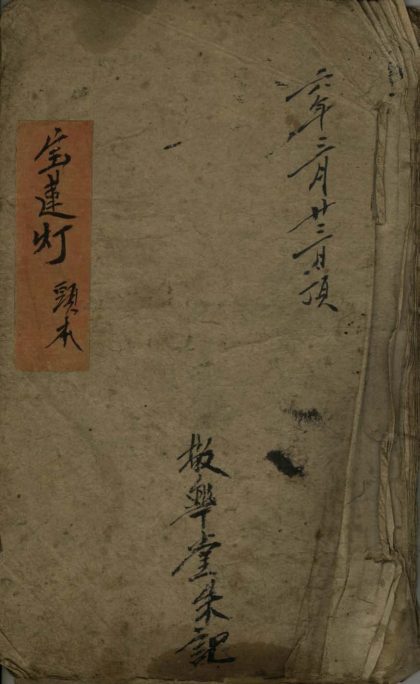 六年三月廿三日頂
堂朱記
宝蓮灯
頭本